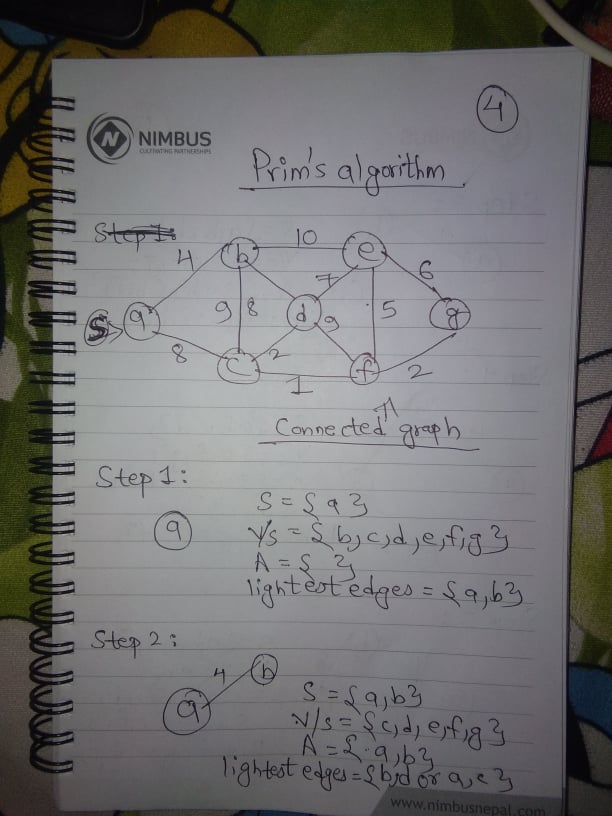 4
NIMBUS
CULTIVATING PARTNERSHIPS
Prim's algorithm
Step 1:
4 b 10 e 6
7
S a 9 8 d 9 5 g
8 c 2 f 2
1
Connected graph
Step 1:
S = { a }
a V/s = { b, c, d, e, f, g }
A = { }
lightest edges = { a, b }
Step 2:
4 b
a S = { a, b }
V/s = { c, d, e, f, g }
A = { a, b }
lightest edges = { b, d or a, c }
www.nimbusnepal.com